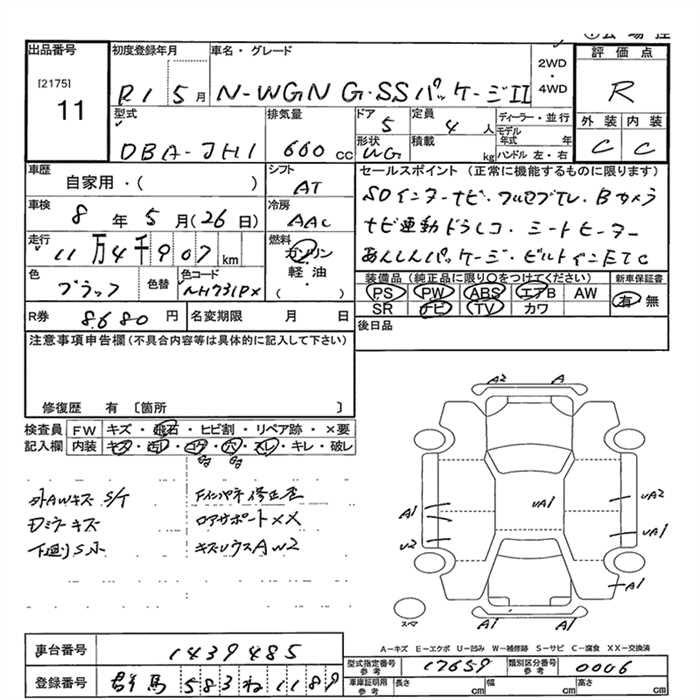 出品番号
[2175]
11
初度登録年月
R1 5月
車名・グレード
N-WGN G・SSパッケージII
2WD
・
4WD
評価点
R
外装 内装
C C
型式
DBA-JH1
排気量
660 cc
ドア
5
定員
4 人
形状
WG
積載
kg
ディーラー・並行
モデル年式 年
ハンドル 左・右
車歴
自家用・( )
シフト
AT
車検
8 年 5 月 (26 日)
冷房
AAC
走行
11万4千907 km
燃料
ガソリン
軽油
・
( )
色
ブラック
色替
色コード
NH731PX
R券 8,680 円
名変期限 月 日
セールスポイント (正常に機能するものに限ります)
SDインターナビ・フルセグTV・Bカメラ
ナビ連動ドラレコ・シートヒーター
あんしんパッケージ・ビルトインETC
装備品 (純正品に限り○をつけてください)
新車保証書
PS PW ABS エアB AW
SR ナビ TV カワ
有 無
後日品
注意事項申告欄 (不具合内容等は具体的に記入して下さい)
修復歴 有 〔箇所 〕
検査員
記入欄
FW キズ・飛石・ヒビ割・リペア跡・×要
内装 キズ・汚れ・コゲ・穴・スレ・キレ・破レ
外AWキズ S/T
Dミラーキズ
下廻りS小
Fインパネ修正歪
ロアサポートXX
キズUウスAW2
A2 A
A1
U2
UA1
UA2
UA1
A1
A1 A1
スマ
A-キズ E-エクボ U-凹み W-補修跡 S-サビ C-腐食 XX-交換済
車台番号 1439485
登録番号 群馬 583 ね 1189
型式指定番号
参考
17659
類別区分番号
参考
0006
車庫証明用
参考
長さ cm 幅 cm 高さ cm